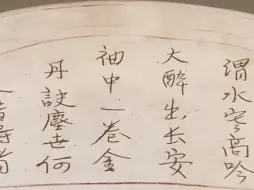 渭水寒高吟
大醉出长安
袖中一卷金
丹訣塵世何